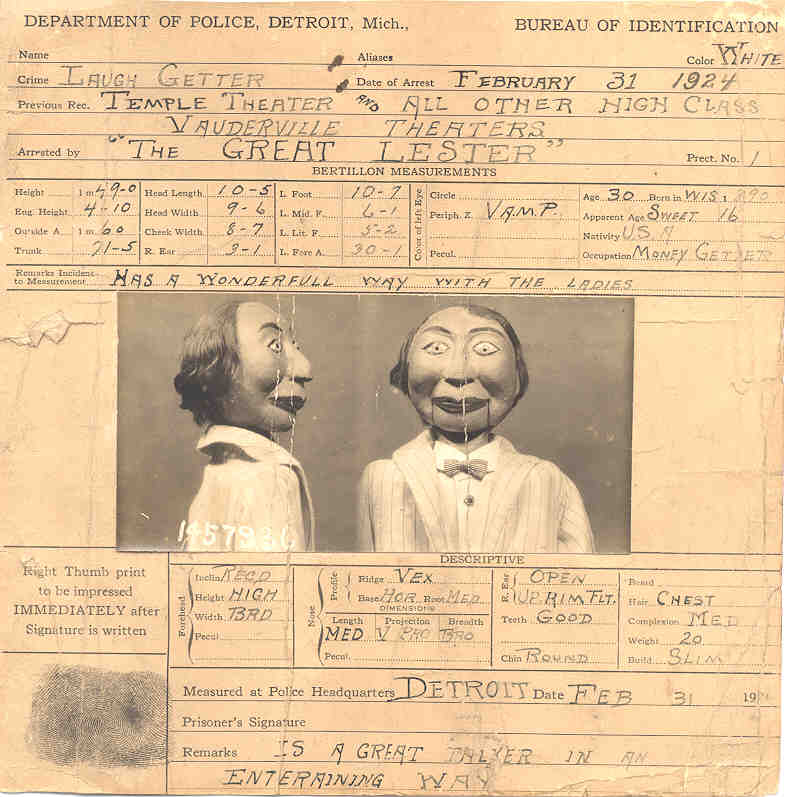 DEPARTMENT OF POLICE, DETROIT, Mich., BUREAU OF IDENTIFICATION
Name Aliases Color WHITE
Crime LAUGH GETTER Date of Arrest FEBRUARY 31 1924
Previous Rec. TEMPLE THEATER AND ALL OTHER HIGH CLASS
VAUDERVILLE THEATERS
Arrested by "THE GREAT LESTER" Prect. No. 1
BERTILLON MEASUREMENTS
Height 1 m 49-0 Head Length 10-5 L. Foot 10-7 Circle Age 30 Born in WIS 1890
Eng. Height 4-10 Head Width 9-6 L. Mid. F. 6-1 Color of left Eye Periph. Z. VAMP. Apparent Age SWEET 16
Outside A. 1 m. 60 Cheek Width 8-7 L. Lit. F. 5-2 Nativity U.S.A
Trunk 71-5 R. Ear 3-1 L. Fore A. 30-1 Pecul. Occupation MONEY GETTER
Remarks Incident to Measurement HAS A WONDERFULL WAY WITH THE LADIES
1457986
DESCRIPTIVE
Right Thumb print
to be impressed
IMMEDIATELY after
Signature is written
Forehead
Inclin RECD
Height HIGH
Width BRD
Pecul
Nose
Profile
Ridge VEX
Base HOR. Root MED
DIMENSIONS
Length Projection Breadth
MED V PRO BRO
Pecul.
R. Ear
OPEN
UP. RIM FLT.
Teeth GOOD
Chin ROUND
Beard
Hair CHEST
Complexion MED
Weight 20
Build SLIM
Measured at Police Headquarters DETROIT Date FEB 31 19
Prisoner's Signature
Remarks IS A GREAT TALKER IN AN
ENTERAINING WAY